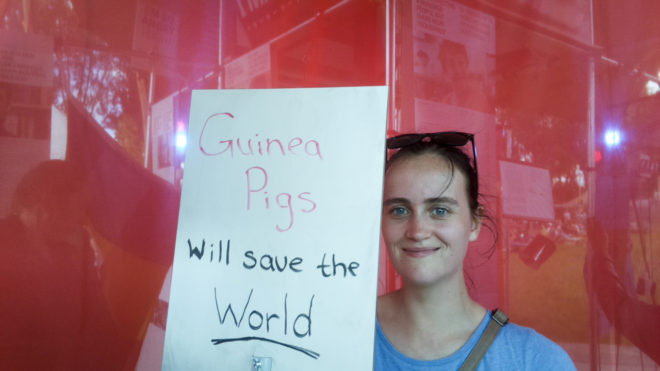 Guinea
Pigs
Will save the
World